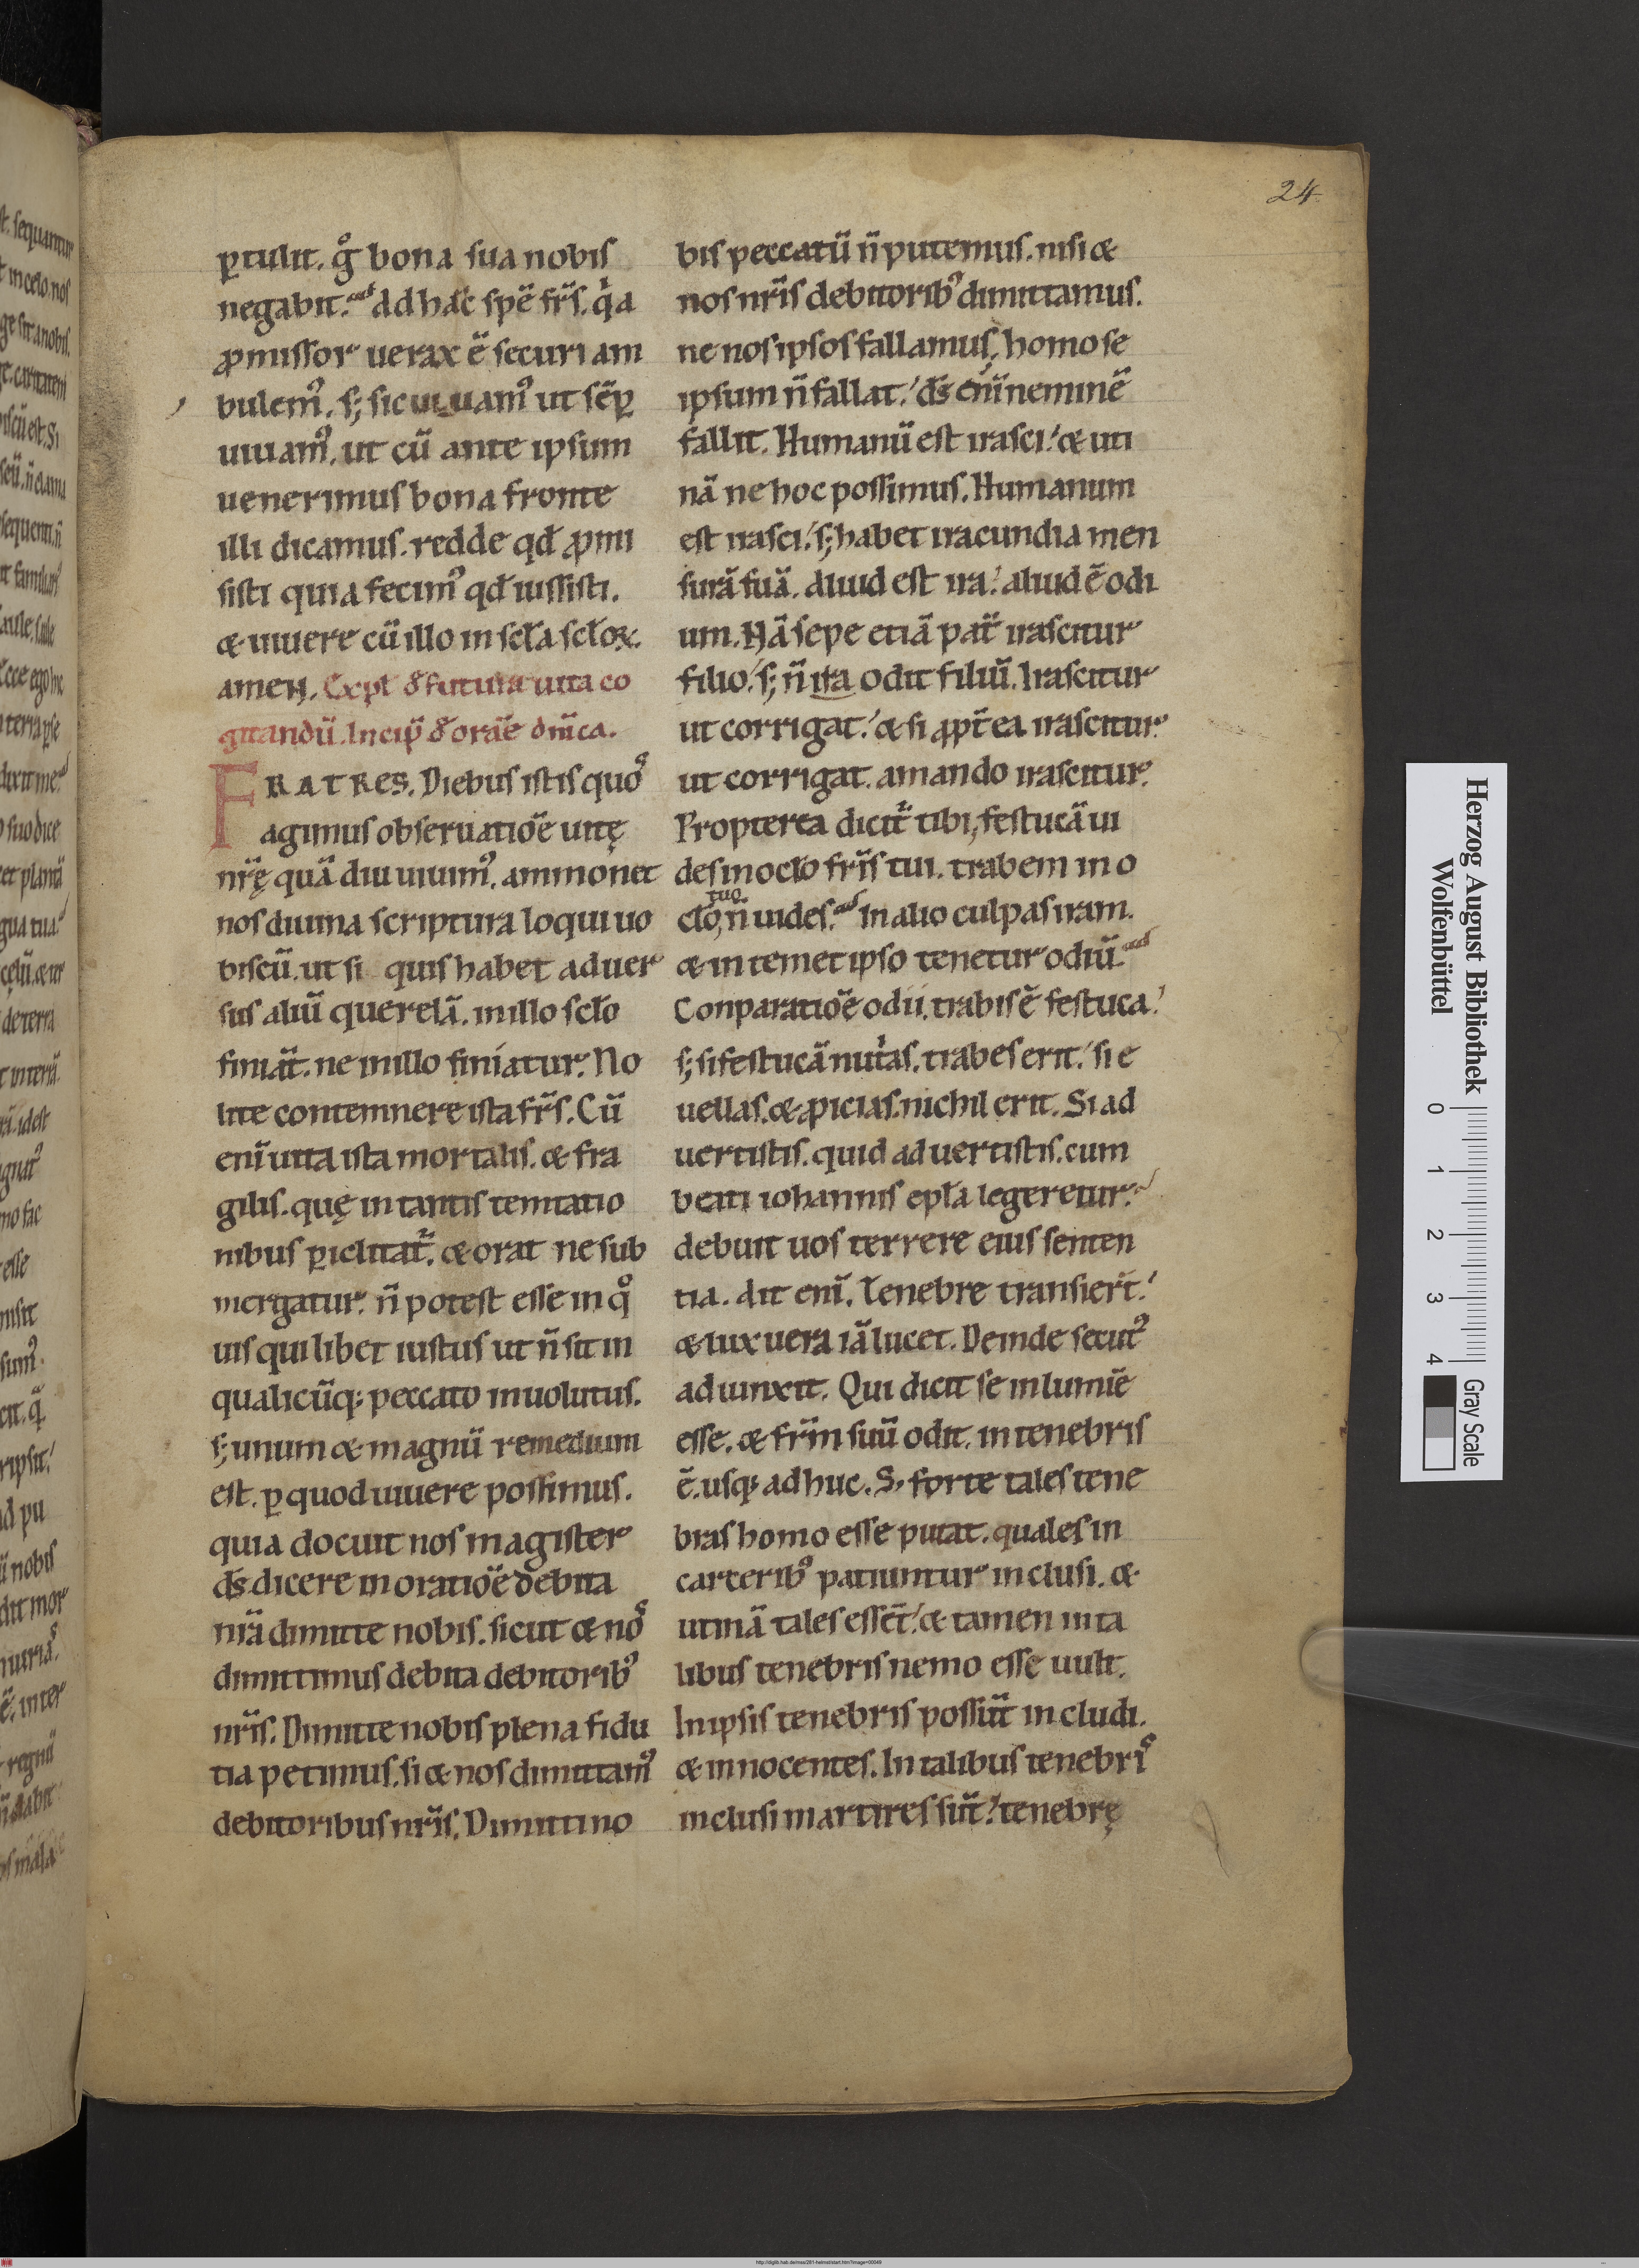 24
ꝑtulit. gͦ bona sua nobis
negabit. ad hãc spẽ fr̃s. qͥa
ꝓmissor uerax ẽ securi am
bulem᷒. s; sic uiuam᷒ ut sẽꝑ
uiuam᷒. ut cũ ante ipsum
uenerimus bona fronte
illi dicamus. redde qđ ꝓmi
sisti quia fecim᷒ qđ iussisti.
& uiuere cũ illo in scła scłoꝝ.
amen. Expł đ futura uita co
gitandũ. Incip̃ đ orãe dñica.
FRATRES. Diebus istis quoͦ
agimus obseruatiõe uitę
nr̃ę quã diu uiuim᷒. ammonet
nos diuina scriptura loqui uo
biscũ. ut si quis habet aduer
sus aliũ querelã. in illo scło
finiãt. ne in illo finiatur. No
lite contemnere ista fr̃s. Cũ
enĩ uita ista mortalis. & fra
gilis. quę in tantis temtatio
nibus ꝑiclitat̃. & orat ne sub
mergatur. ñ potest esse in qͦ
uis quilibet iustus ut ñ sit in
qualicũq; peccato inuolutus.
s; unum & magnũ remedium
est. ꝑ quod uiuere possimus.
quia docuit nos magister
đs. dicere in oratiõe debita
nr̃a dimitte nobis. sicut & noͨ
dimittimus debita debitorib᷒
nr̃is. Dimitte nobis plena fidu
tia petimus. si & nos dimittam᷒
debitoribus nr̃is. Dimitti no
bis peccatũ ñ putemus. nisi &
nos nr̃is debitorib᷒ dimittamus.
ne nos ipsos fallamus, homo se
ipsum ñ fallat. đs enĩ neminẽ
fallit. Humanũ est irasci. & uti
nã ne hoc possimus. Humanum
est irasci. s; habet iracundia men
surã suã. aliud est ira. aliud ẽ odi
um. Nã sepe etiã pat̃ irascitur
filio. s; ñ ita odit filiũ. Irascitur
ut corrigat. & si ꝓpt̃ea irascitur
ut corrigat. amando irascitur.
Propterea dicit̃ tibi, festucã ui
des in ocło fr̃is tui. trabem in o
cło tuo ñ uides. In alio culpas iram.
& in temet ipso tenetur odiũ.
Conparatiõe odii. trabis ẽ festuca.
s; si festucã nut̃as. trabes erit. si e
uellas. & ꝓicias. nichil erit. Si ad
uertistis. quid aduertistis. cum
beati iohannis epła legeretur.
debuit uos terrere eius senten
tia. ait enĩ. Tenebre transier̃t.
& lux uera iã lucet. Deinde secut᷒
adiunxit. Qui dicit se in lumĩe
esse. & fr̃m suũ odit. in tenebris
ẽ. usq; adhuc. S; forte tales tene
bras homo esse putat. quales in
carcerib᷒ patiuntur inclusi. &
utinã tales essẽt. & tamen in ta
libus tenebris nemo esse uult.
In ipsis tenebris possũt includi.
& innocentes. In talibus tenebrͥ
inclusi martires sũt. tenebrę
Herzog August Bibliothek
Wolfenbüttel
0 1 2 3 4
Gray Scale
http://diglib.hab.de/mss/281-helmst/start.htm?image=00049